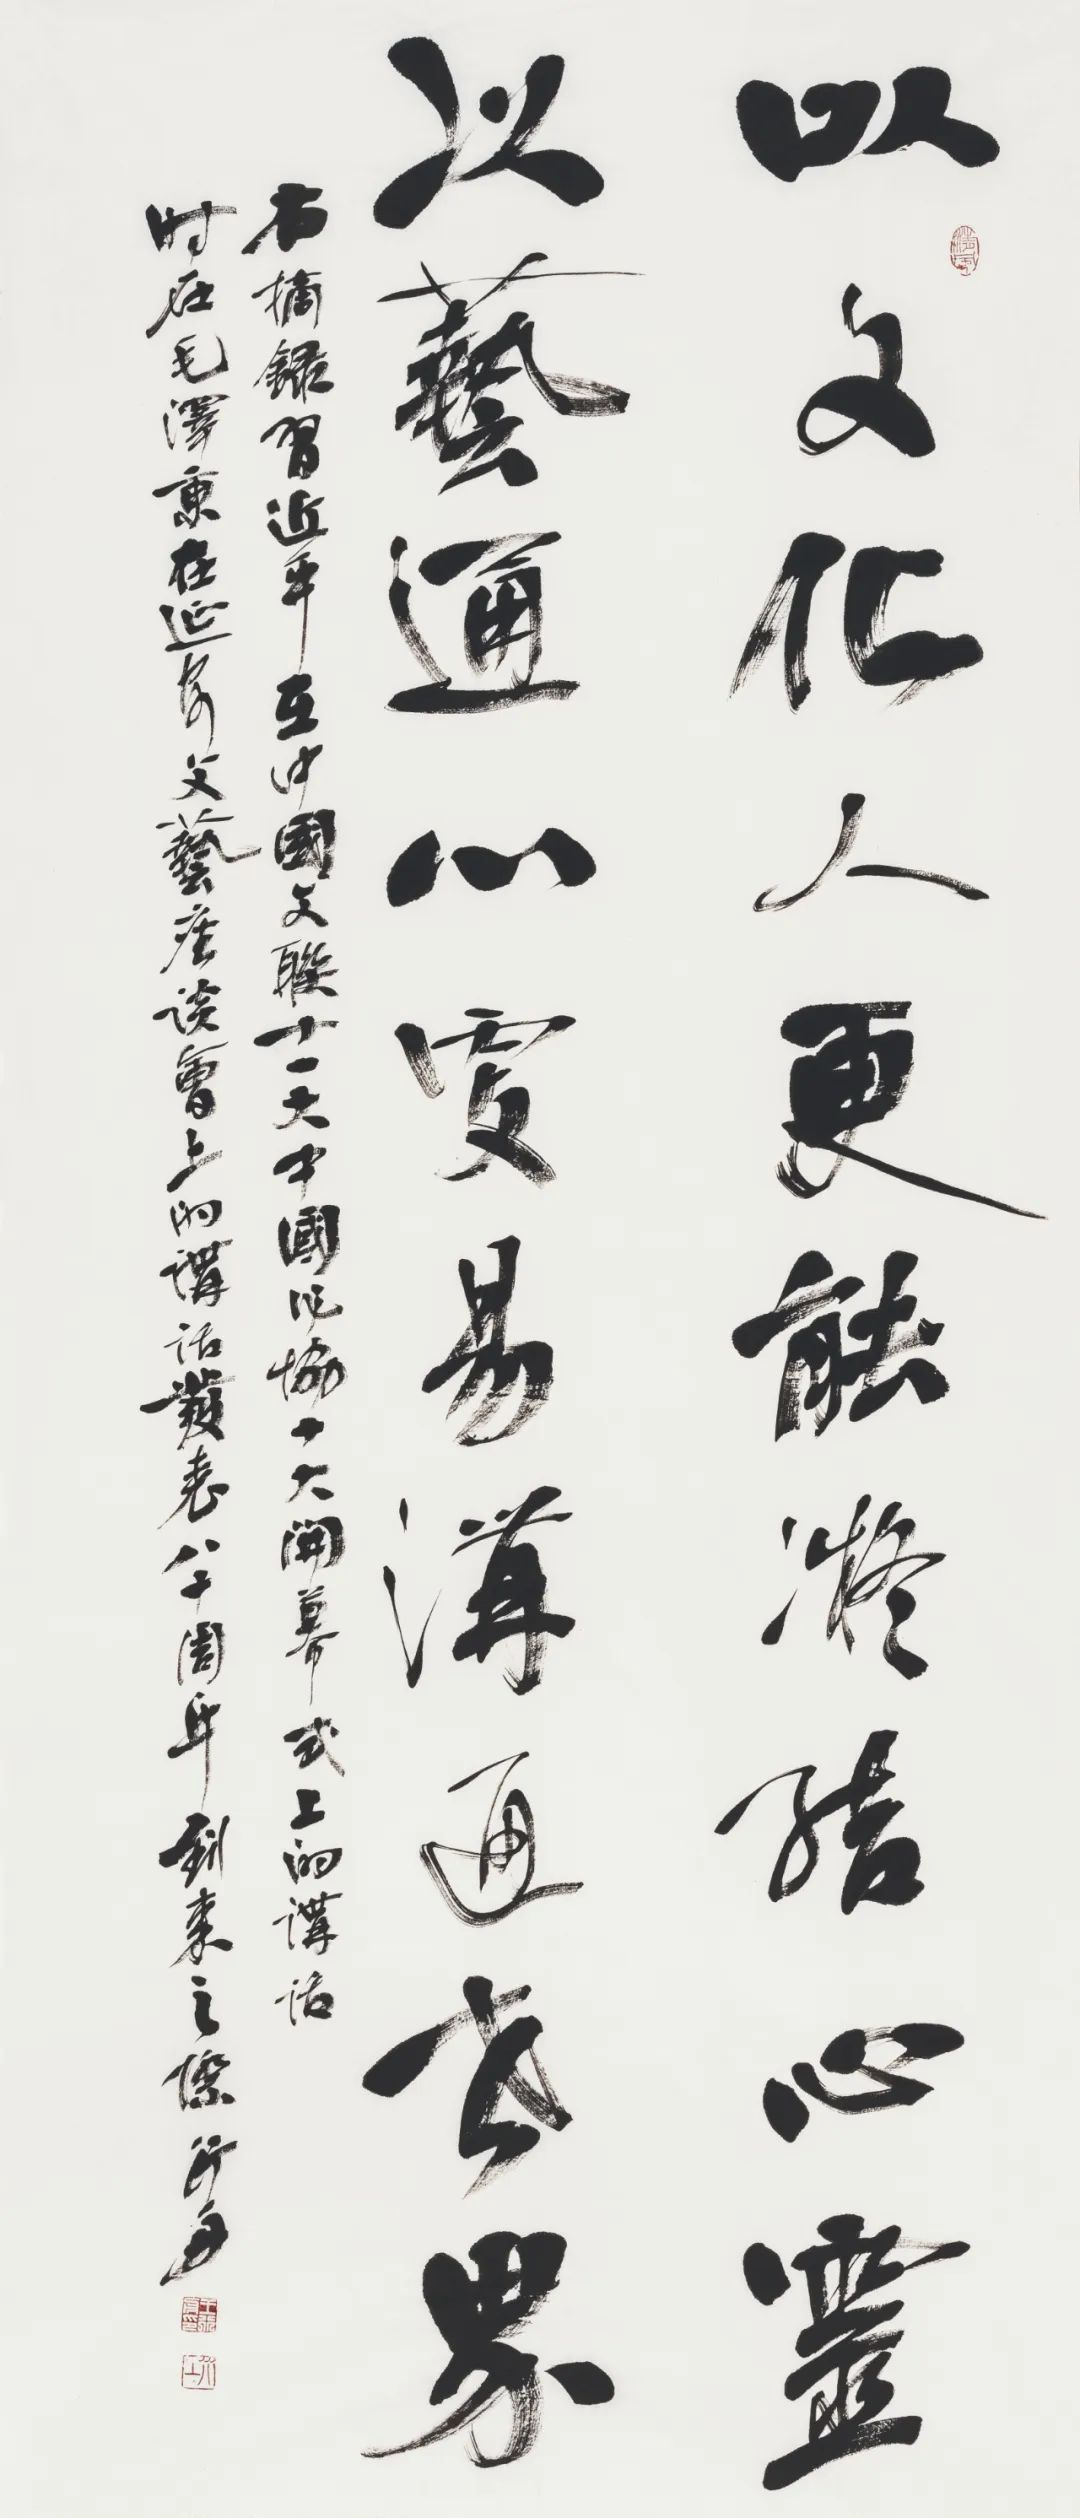 以文化人更能凝結心靈
以藝通心更易溝通世界
右摘錄習近平在中國文聯十一大中國作協十大開幕式上的講話
时在毛澤東在延安文藝座談會上的講話發表八十周年到來之際